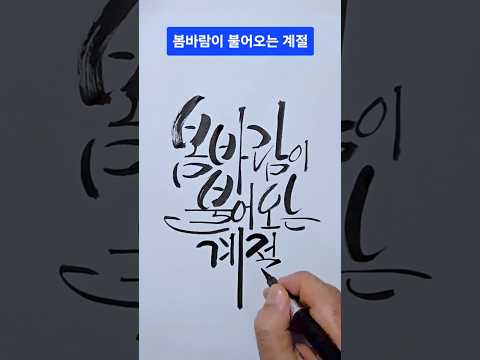 봄바람이 불어오는 계절
봄바람이
불어오는
계절